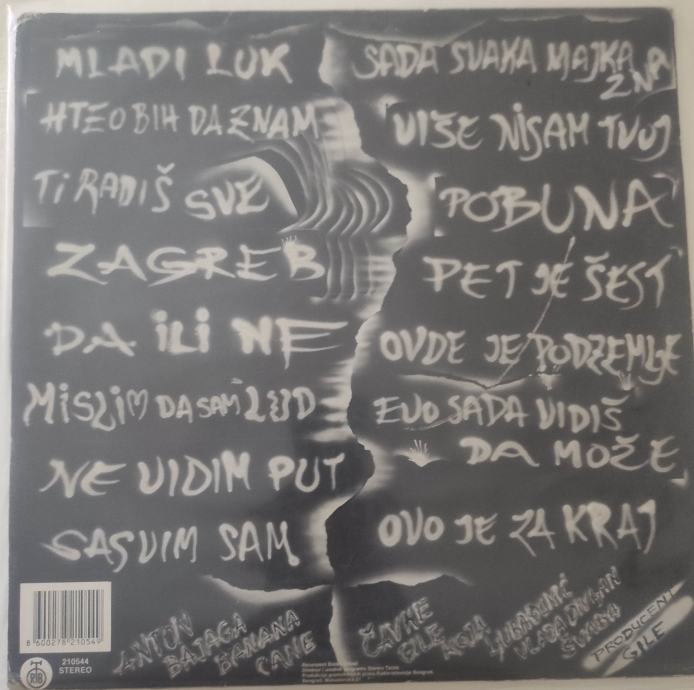 MLADI LUK
HTEO BIH DA ZNAM
TI RADIŠ SVE
ZAGREB
DA ILI NE
MISLIM DA SAM LUD
NE VIDIM PUT
SASVIM SAM
SADA SVAKA MAJKA ZNA
VIŠE NISAM TVOJ
POBUNA
PET JE ŠEST
OVDE JE PODZEMLJE
EVO SADA VIDIŠ
DA MOŽE
OVO JE ZA KRAJ
ANTON
BAJAGA
BANANA
CANE
ČAVKE
GILE
KOJA
VLADA DIVLJAN
ŠVABA
PRODUCENT
GILE
8 600278 210549
RTB
210544
STEREO